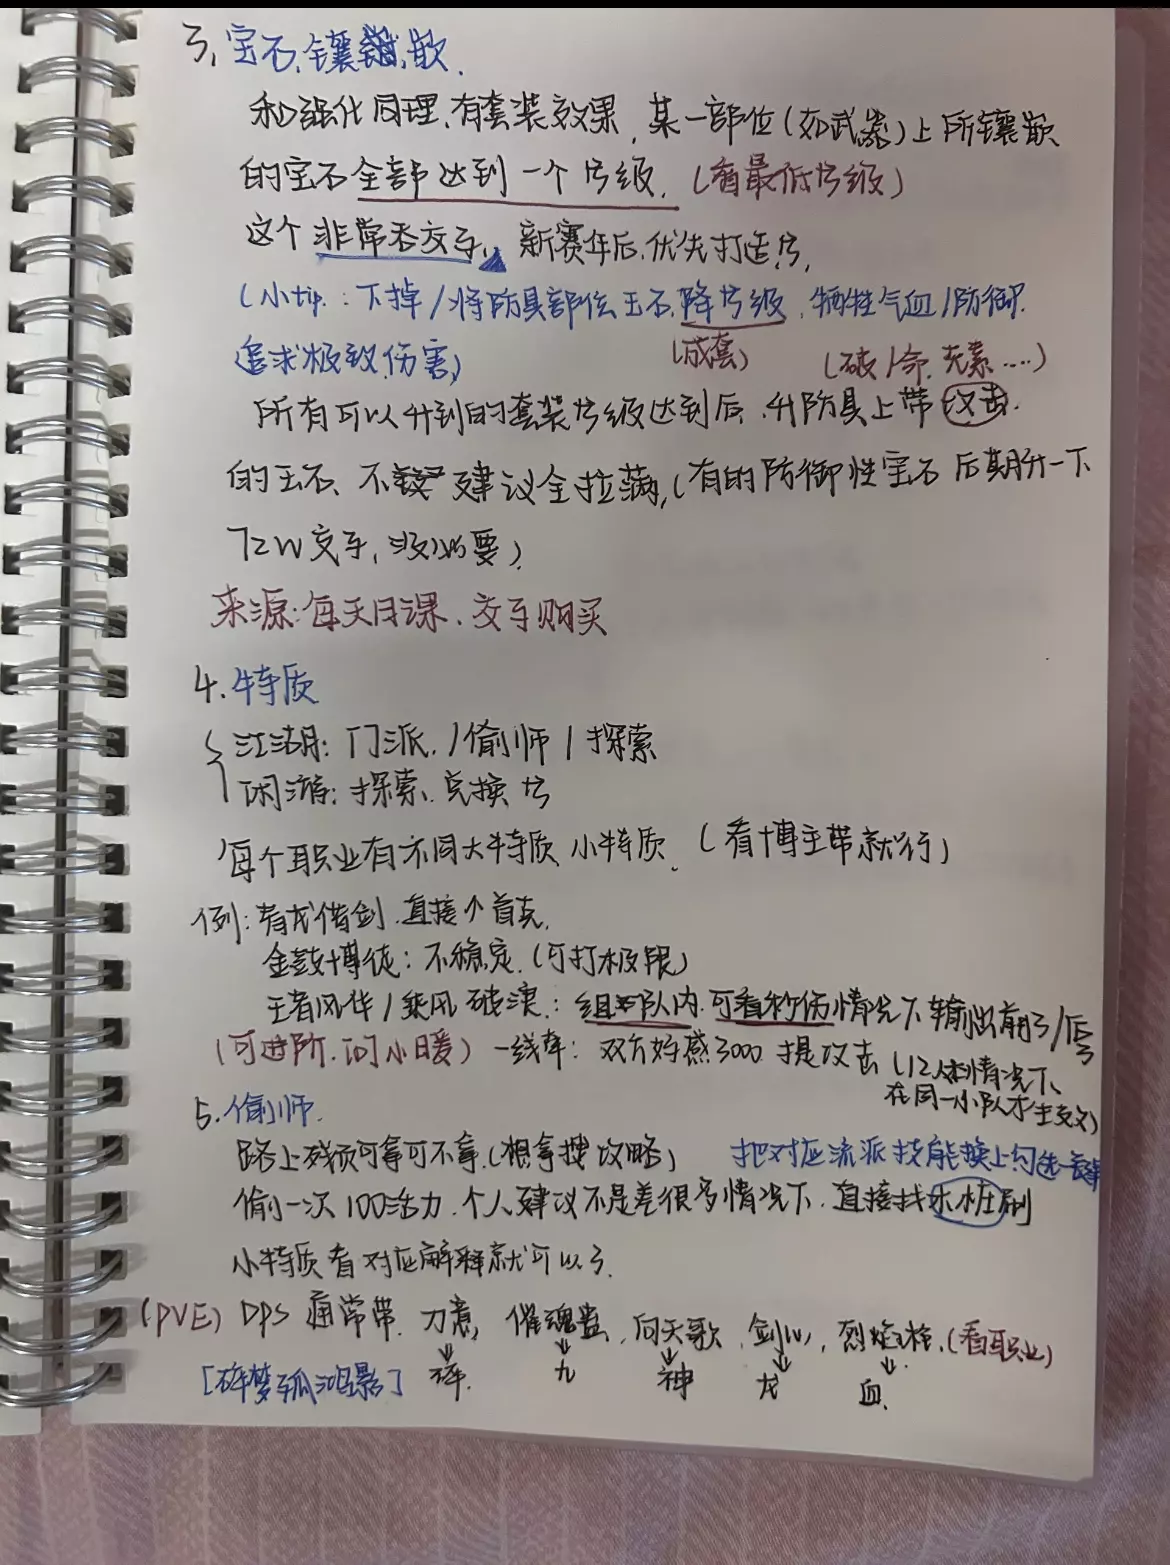 3、宝石、镶嵌.
和强化同理、有套装效果,某一部位(如武器)上所镶嵌
的宝石全部达到一个等级.(看最低等级)
这个非常吞交子、新赛年后、优先打造等,
(小tip:下掉/将防具部位玉石、降等级、牺牲气血/防御.
追求极致伤害)
(成套)
(破/命、元素....)
所有可以升到的套装等级达到后、升防具上带攻击.
的玉石、不建议全拉满,(有的防御性宝石后期升一下
72W交子,没必要)
来源:每天日课、交子购买
4.特质
江湖:门派./偷师/探索
闲游:探索、兑换等
每个职业有不同大特质、小特质.(看博主带就行)
例:青龙借剑.直接个首充.
金鼓博徒:不稳定.(可打极限)
王者风华/乘风破浪:组队内.可看秒伤情况下输出前3/后3
(可进阶.问小暖)一线牵:双方好感3000提攻击(12人本情况下、
在同一小队才生效)
5.偷师.
路上残页可拿可不拿.(想拿搜攻略) 把对应流派技能换上勾选
偷一次100活力.个人建议不是差很多情况下.直接找木桩刷
小特质看对应解释就可以了.
(PVE)DPS通常带.刀意,催魂蛊,问天歌、剑心,烈焰枪.(看职业)
[碎梦孤鸿影] 碎. 九 神 龙 血.